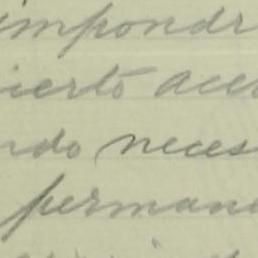 impondr
ierto acc
ndo neces
perman